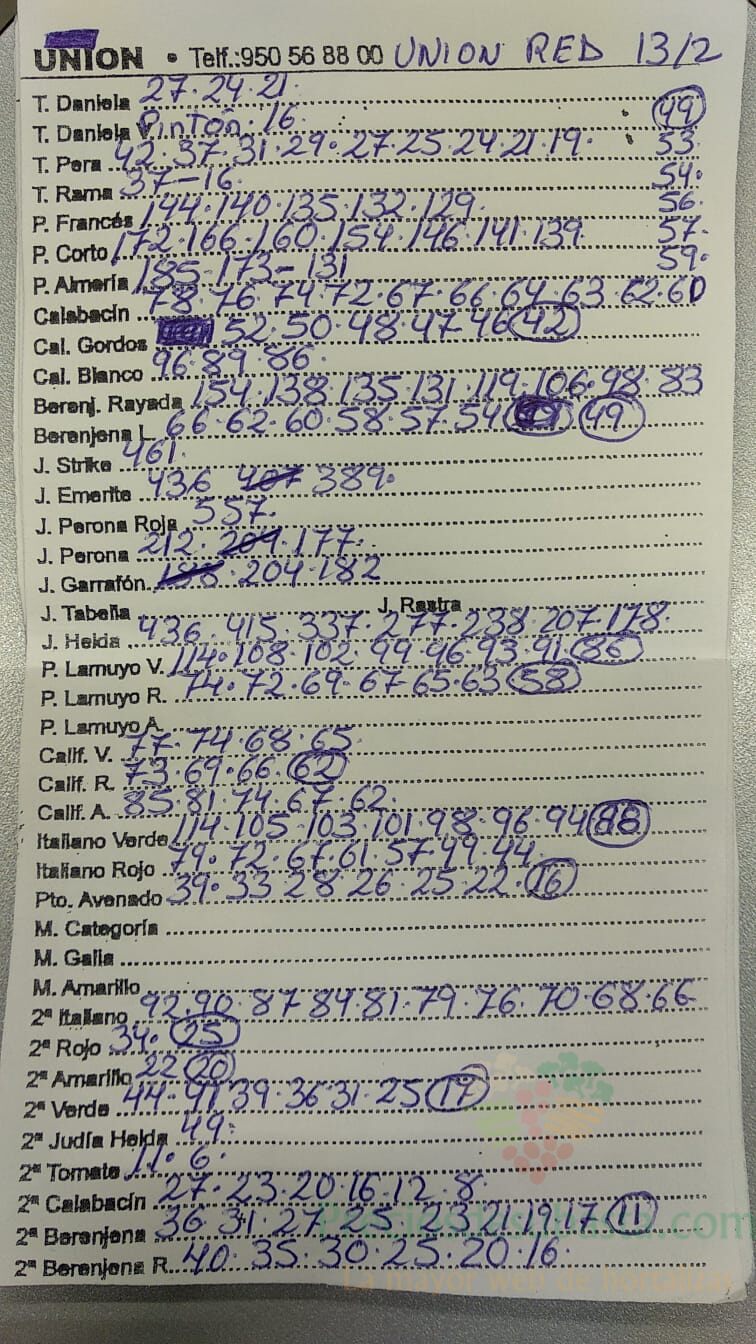 UNION • Telf.:950 56 88 00 UNION RED 13/2
T. Daniela 27·24·21·
T. Daniela V. Pintón·16· 49
T. Pera 42·37·31·29·27·25·24·21·19· 53
T. Rama 37-16· 54·
P. Francés 144·140·135·132·129· 56·
P. Corto 172·166·160·154·146·141·139 57·
P. Almería 185-173-131 59·
Calabacín 78·76·74·72·67·66·64·63·62·60
Cal. Gordos 52·50·48·47·46 42
Cal. Blanco 96·89·86·
Berenj. Rayada 154·138·135·131·119·106·98·83
Berenjena L. 66·62·60·58·57·54 49
J. Strike 461·
J. Emerite 436 407 389·
J. Perona Roja 557·
J. Perona 212·204·177·
J. Garrafón 204·182
J. Tabella J. Rastra
J. Helda 436·415·337·277·238·207·178·
P. Lamuyo V. 114·108·102·99·96·93·91 86
P. Lamuyo R. 74·72·69·67·65·63 58
P. Lamuyo A.
Calif. V. 77·74·68·65·
Calif. R. 73·69·66· 62
Calif. A. 85·81·74·67·62·
Italiano Verde 114·105·103·101·98·96·94 88
Italiano Rojo 79·72·67·61·57·49·44
Pto. Avenado 39·33·28·26·25·22· 16
M. Categoría
M. Galia
M. Amarillo
2ª Italiano 92·90·87·84·81·79·76·70·68·66
2ª Rojo 34· 25
2ª Amarillo 22 20
2ª Verde 44·41·39·36·31·25 17
2ª Judía Helda 49·
2ª Tomate 11·6·
2ª Calabacín 27·23·20·16·12·8·
2ª Berenjena 36·31·27·25·23·21·19·17 11
2ª Berenjena R. 40·35·30·25·20·16·